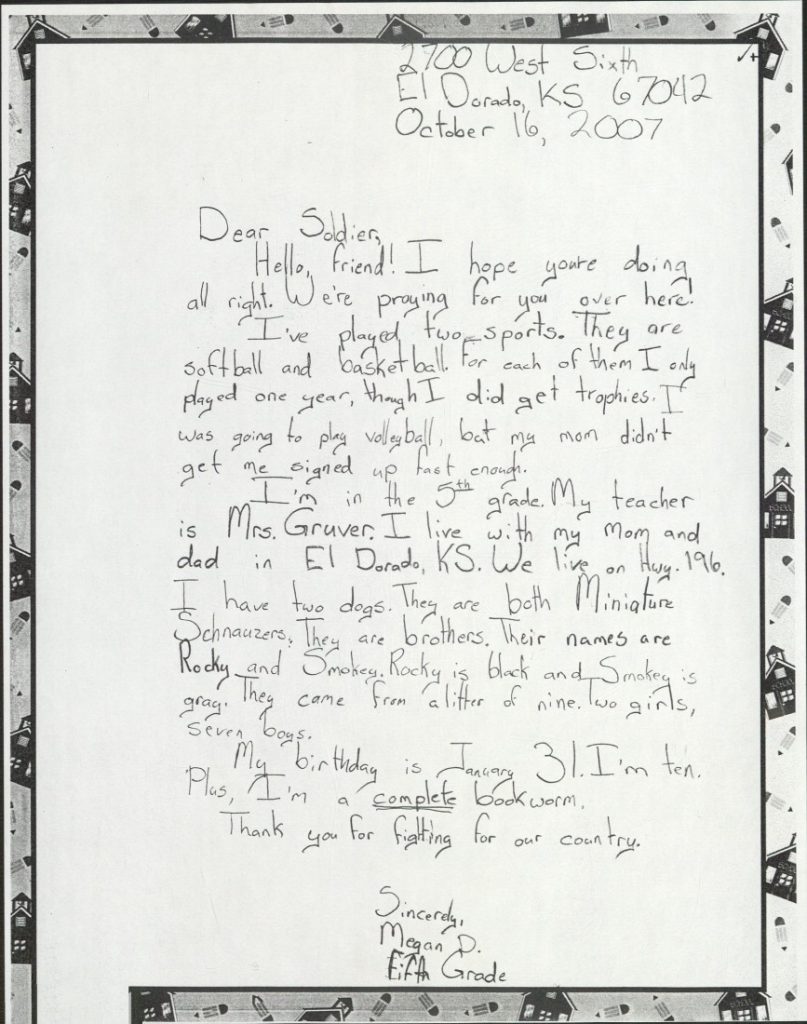 2700 West Sixth
El Dorado, KS 67042
October 16, 2007
Dear Soldier,
Hello, friend! I hope you're doing
all right. We're praying for you over here!
I've played two sports. They are
softball and basketball. For each of them I only
played one year, though I did get trophies. I
was going to play volleyball, but my mom didn't
get me signed up fast enough.
I'm in the 5th grade. My teacher
is Mrs. Gruver. I live with my mom and
dad in El Dorado, KS. We live on Hwy. 196.
I have two dogs. They are both Miniature
Schnauzers. They are brothers. Their names are
Rocky and Smokey. Rocky is black and Smokey is
gray. They came from a litter of nine. Two girls,
seven boys.
My birthday is January 31. I'm ten.
Plus, I'm a complete bookworm.
Thank you for fighting for our country.
Sincerely,
Megan D.
Fifth Grade